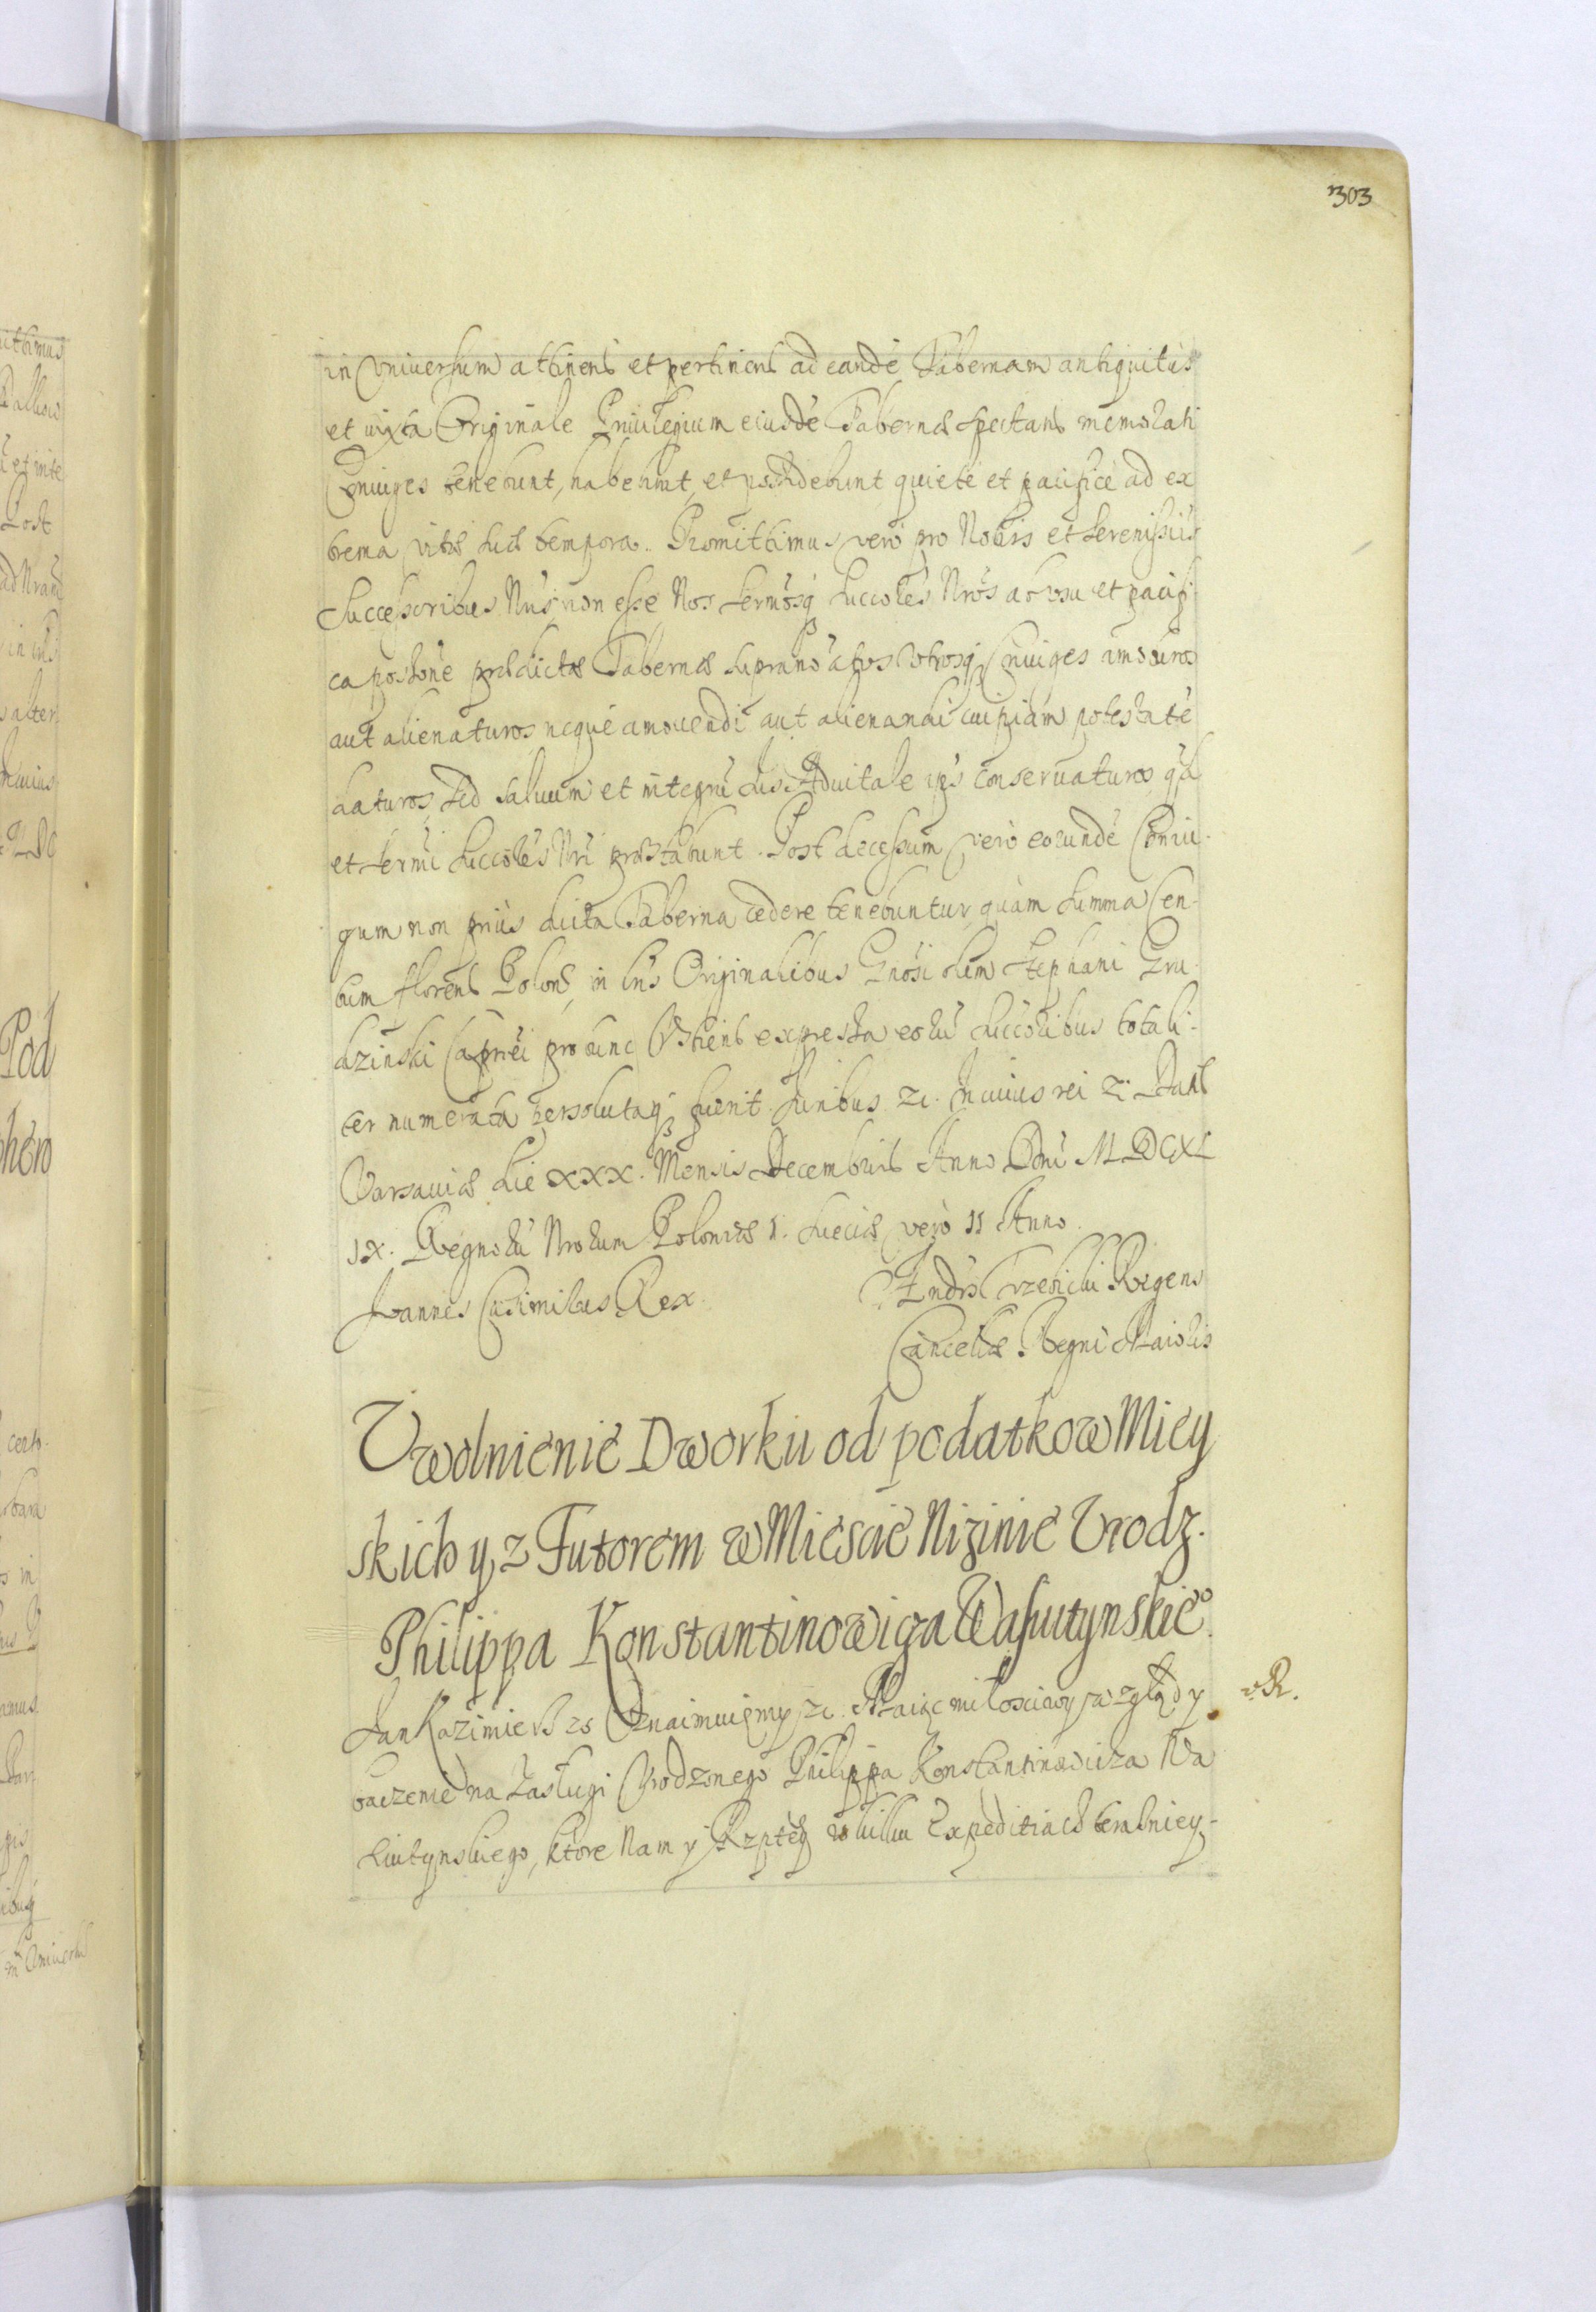 303
in Vniuersum attinens et pertinens ad eandē Tabernam antiquitùs
et iuxta Originale Priuilegium eiusdē Tabernæ spectans memorati
Coniuges tenebunt, habebunt, et possidebunt quiete et pacifice ad ex
trema vitæ suæ tempora. Promittimus vero pro Nobis et Serenissīs
Successoribus Nrīs non esse Nos Sermosq Succores Nros ab vsu et pacifi
ca possione prædictæ Tabernæ supranoatos Vtrosq Coniuges amoturos
aut alienaturos, neque amouendi aut alienandi cuipiam potestatē
daturos, sed saluum et integrū Ius Aduitale ips conseruaturos, qd
et Sermi Succores Nri præstabunt. Post decessum vero eorundē Coniu-
gum non prius dicta Taberna cedere tenebuntur, quàm summa Cen-
tum florens Polons in lris Originalibus Gnosi olim Stephani Gru-
dzinski Capnei pro tunc Vstiens expressa eorū succoribus totali-
ter numerata persolutaq fuerit. Iuribus etc. In cuius rei etc. Dat
Varsauiæ die XXX. Mensis Decembris Anno Dni MDCXL
IX. Regnorū Nrorum Poloniæ 1. Sueciæ vero 11 Anno.
Ioannes Casimirus Rex
Andrs Trzebicki Regens
Cancellæ Regni Maioris
Vwolnienie Dworku od podatkow Miey
skich y z Futorem w Miescie Nizinie Vrodz.
Philippa Konstantinowicza Wasiutynskieo.
Jan Kazimierz etc Oznaimuięmy etc. Maiąc miłosciwy wzgląd y
v. R.
baczenie na zasługi Vrodzonego Philippa Konstantinowicza Wa
siutynskiego, ktore Nam y Rzptey w kilku Expeditiach teraśniey-